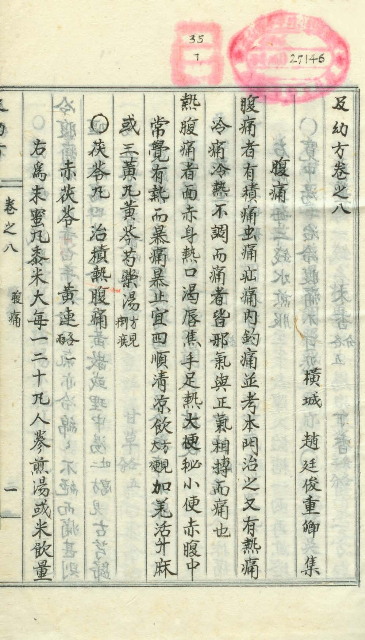 35
7
27146
及幼方卷之八
橫城 趙廷俊重卿 集
腹痛
腹痛者有積痛虫痛疝痛內釣痛並考本門治之又有熱痛
冷痛冷熱不調而痛者皆邪氣與正氣相搏而痛也
熱腹痛者面赤身熱口渴唇焦手足熱大便秘小便赤腹中
常覺有熱而暴痛暴止宜四順清凉飲加羌活升麻
或三黃丸黃芩芍藥湯
茯苓丸 治積熱腹痛
赤茯苓 黃連
右爲末蜜丸黍米大每一二十丸人參煎湯或米飮量
卷之八
腹痛
一